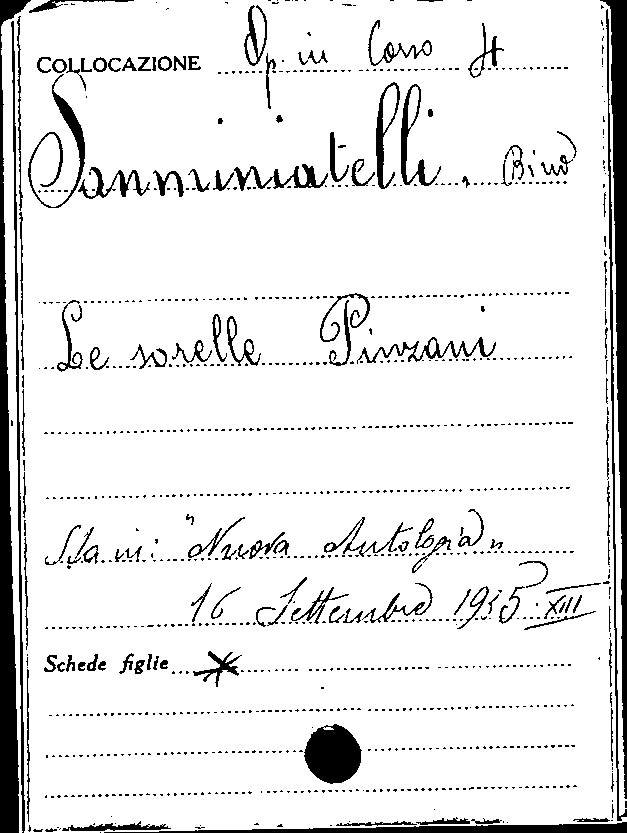 COLLOCAZIONE Op. in Corso H
Sanminiatelli, Bino
Le sorelle Pinzani
Sta in: "Nuova Antologia"
16 Settembre 1935 XIII
Schede figlie